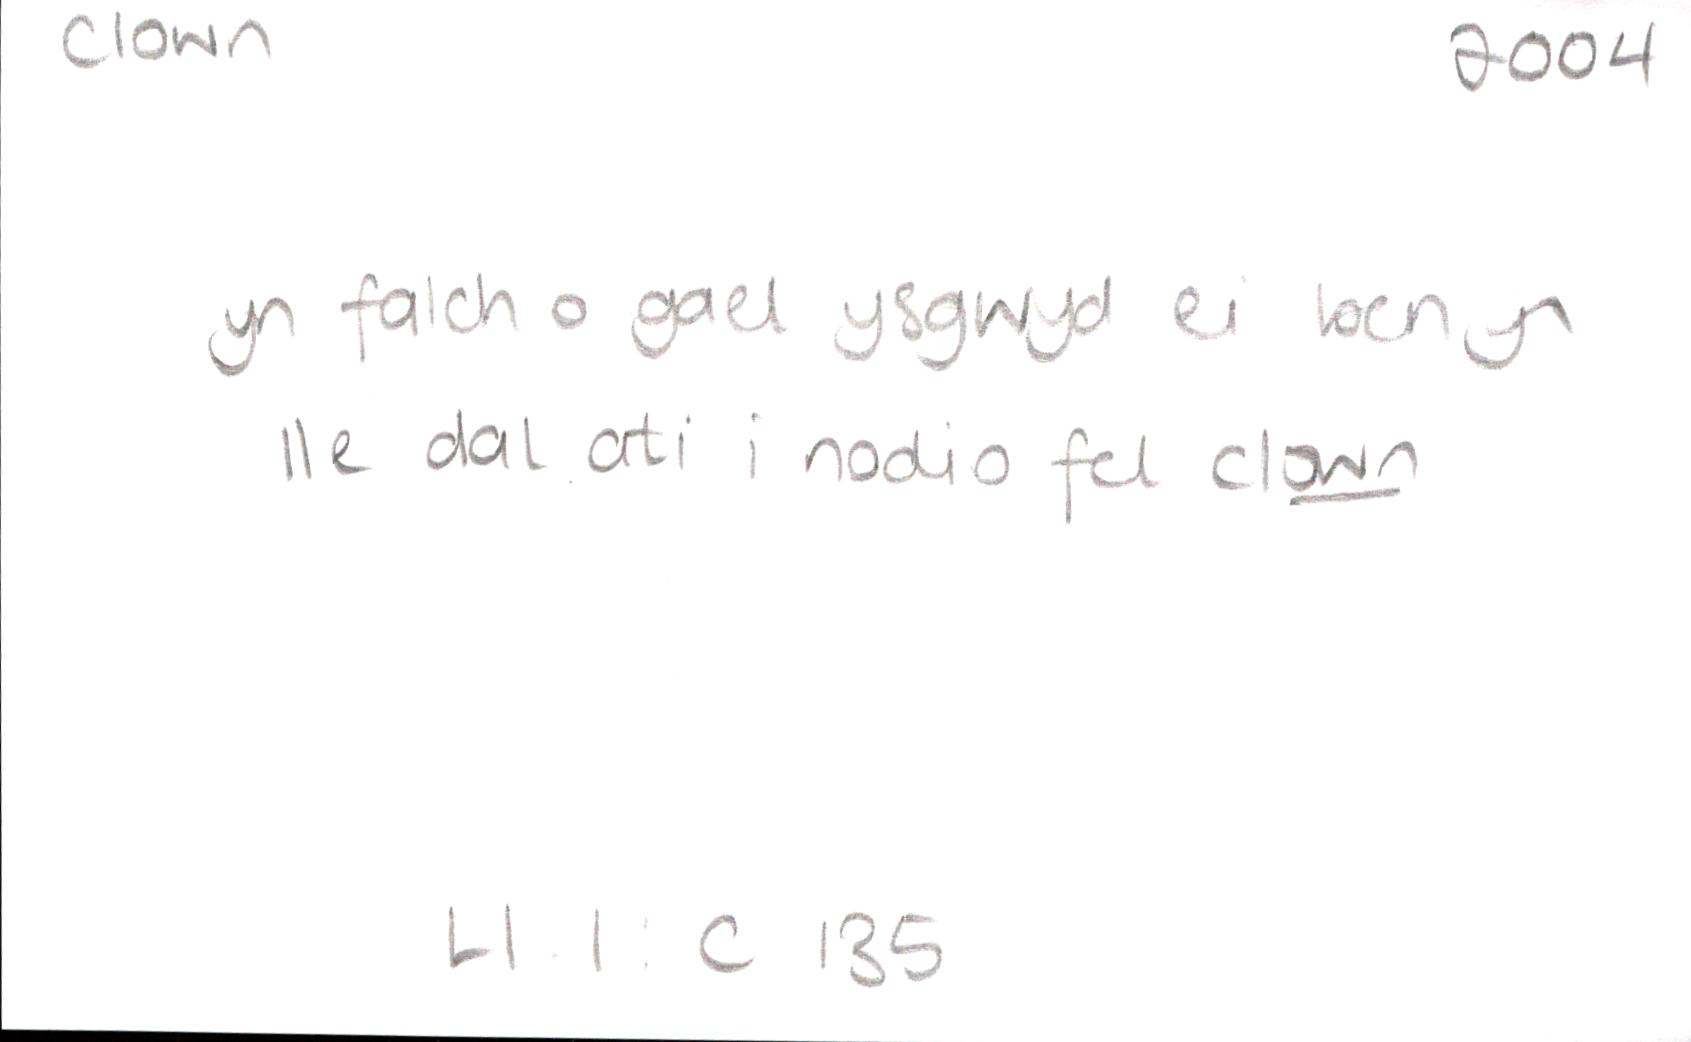 clown 2004
yn falch o gael ysgwyd ei ben yn
lle dal ati i nodio fel clown
Ll. I: C 135